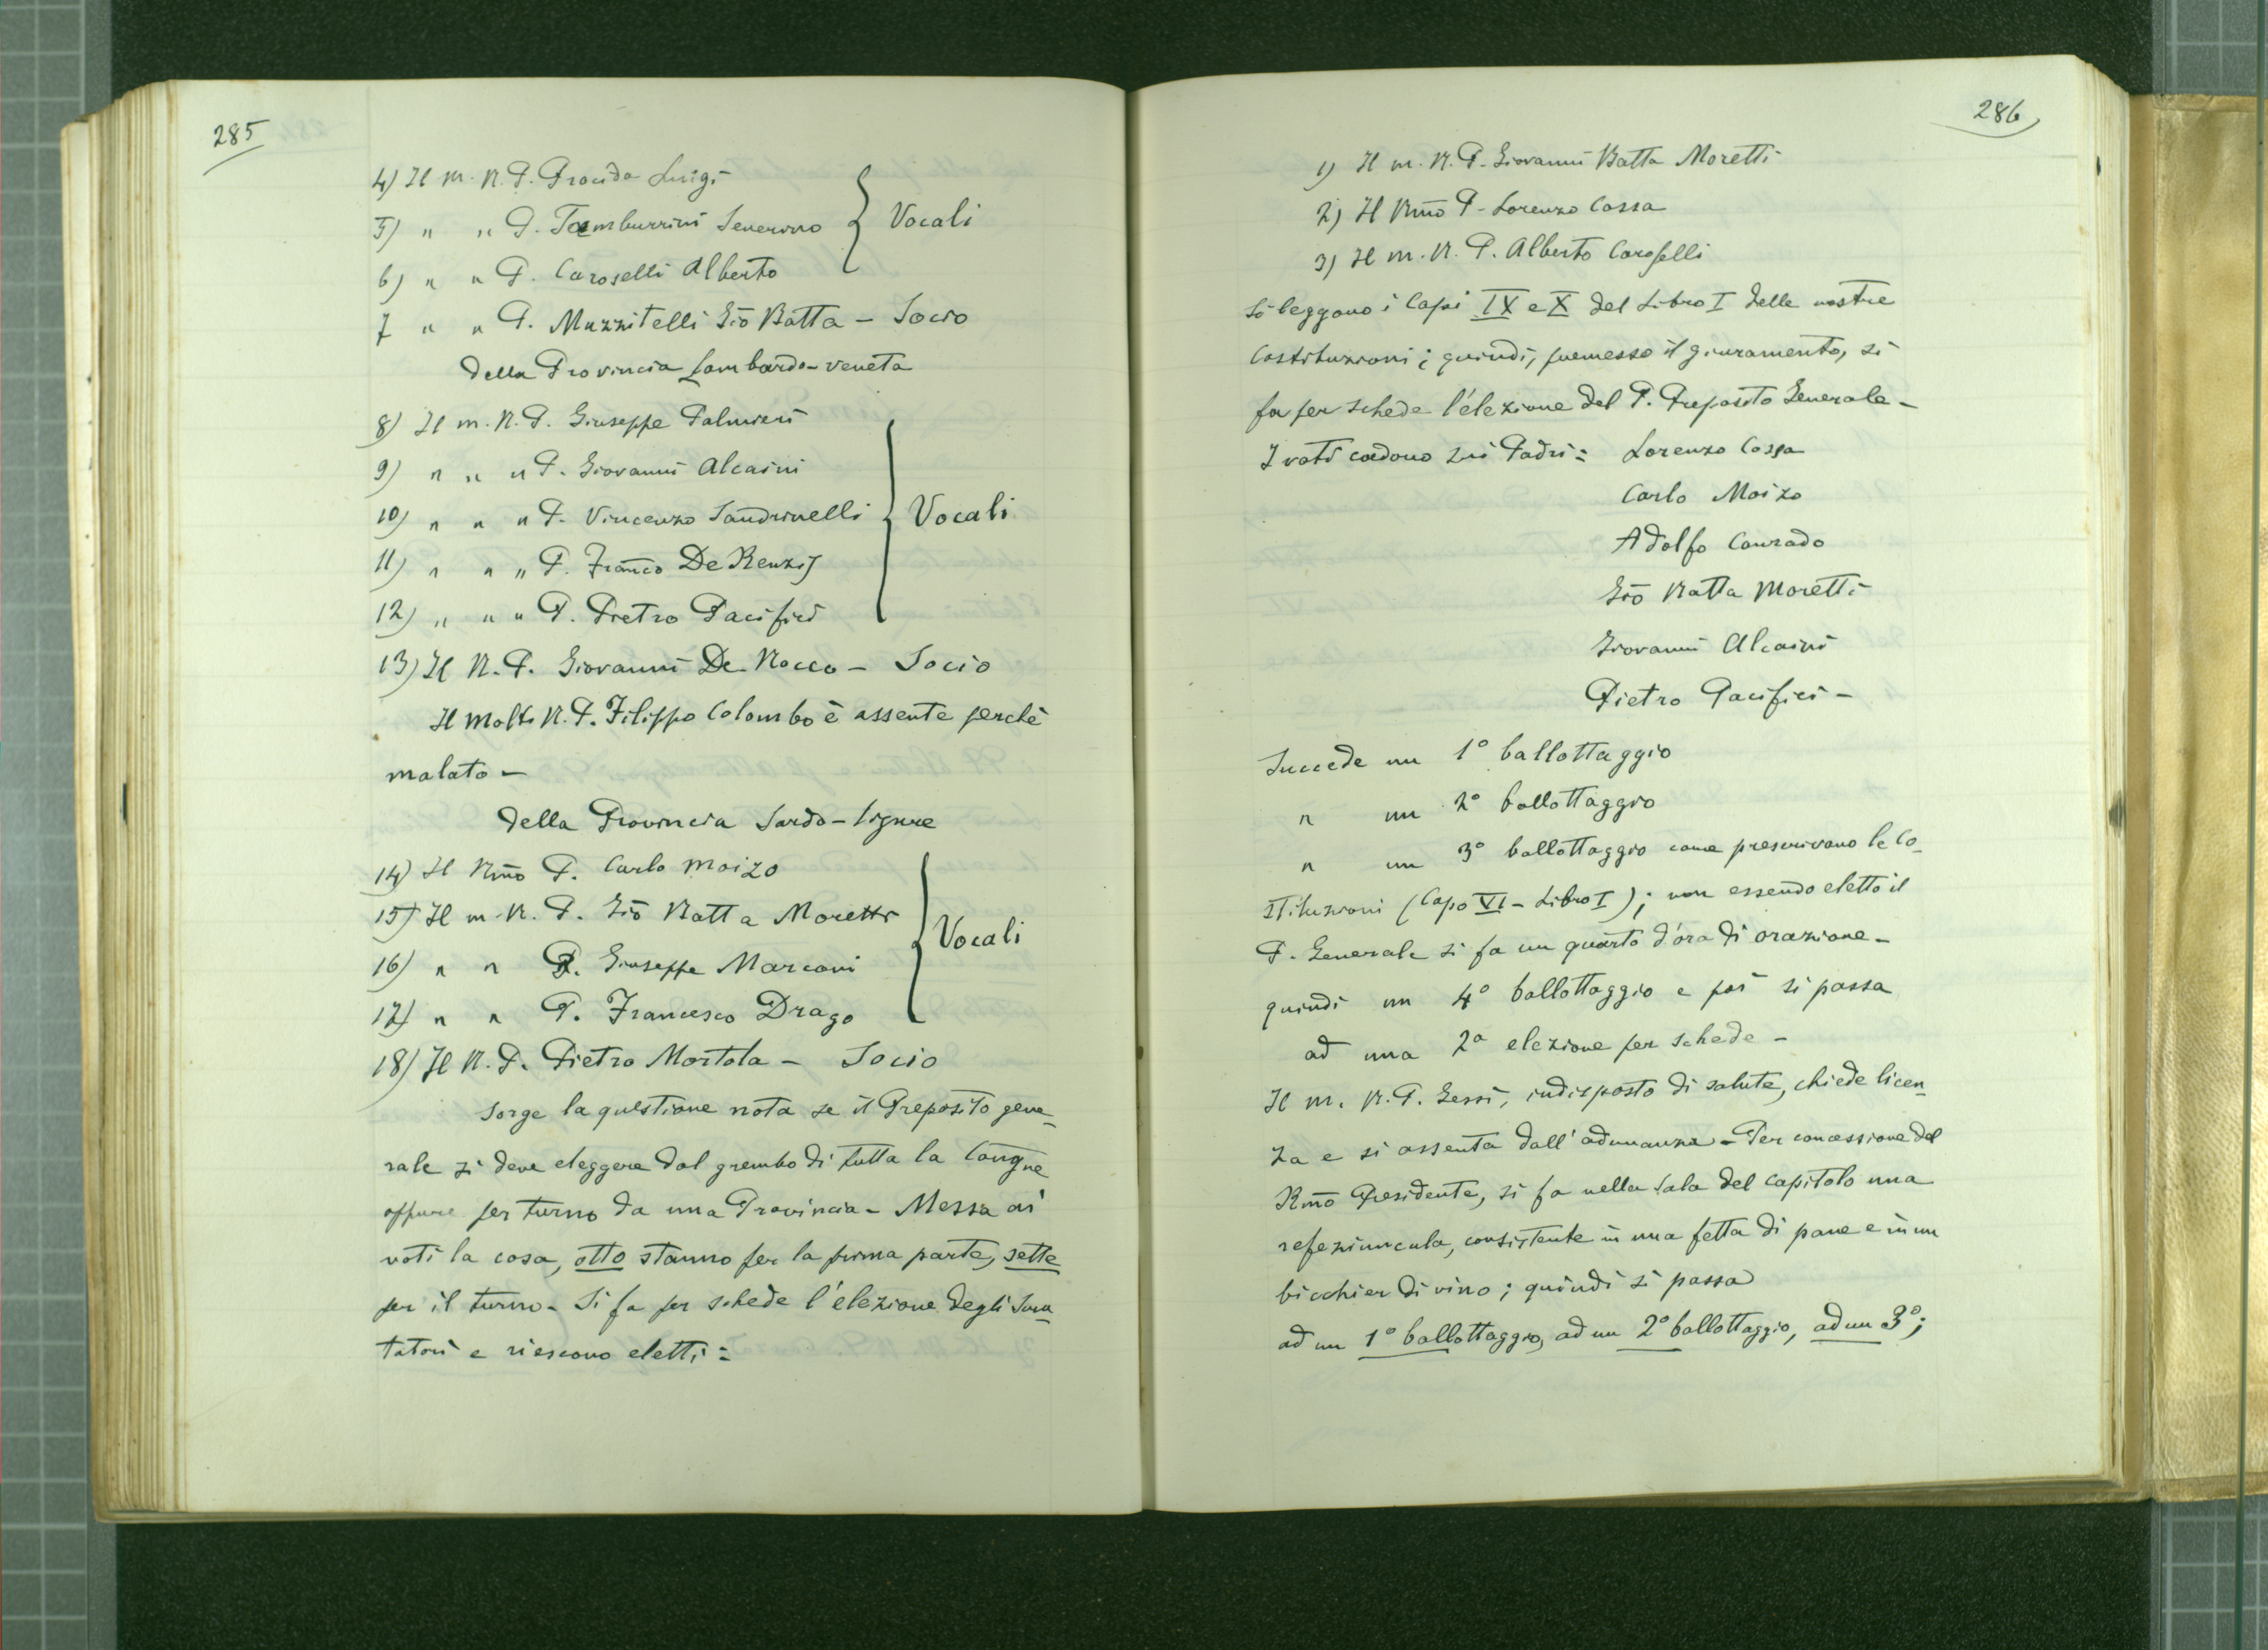 285
4) Il m. R. P. Procida Luigi
5) " " P. Tamburrini Severino
6) " " P. Caroselli Alberto
Vocali
7 " " P. Muzzitelli Giō Batta – Socio
della Provincia Lombardo-veneta
8) Il m. R. P. Giuseppe Palmieri
9) " " " P. Giovanni Alcaini
10) " " " P. Vincenzo Sandrinelli
11) " " " P. Franc̄o De Renzis
12) " " " P. Pietro Pacifici
Vocali
13) Il R. P. Giovanni De Rocco – Socio
Il Molto R. P. Filippo Colombo è assente perchè
malato –
della Provincia Sardo-ligure
14) Il Rm̄o P. Carlo Moizo
15) Il m. R. P. Giō Batta Moretti
16) " " P. Giuseppe Marconi
17) " " P. Francesco Drago
Vocali
18) Il R. P. Pietro Mortola – Socio
Sorge la questione nota se il Preposito gene-
rale si deve eleggere dal grembo di tutta la Congn̄e
oppure per turno da una Provincia – Messa ai
voti la cosa, otto stanno per la prima parte, sette
per il turno – Si fa per schede l'elezione degli Scru-
tatori e riescono eletti:
286
1) Il m. R. P. Giovanni Batta Moretti
2) Il Rm̄o P. Lorenzo Cossa
3) Il m. R. P. Alberto Caroselli
Si leggono i Capi IX e X del Libro I delle nostre
Costituzioni; quindi, premesso il giuramento, si
fa per schede l'elezione del P. Preposito Generale –
I voti cadono sui Padri: Lorenzo Cossa
Carlo Moizo
Adolfo Conrado
Giō Batta Moretti
Giovanni Alcaini
Pietro Pacifici –
Succede un 1º ballottaggio
" un 2º ballottaggio
" un 3º ballottaggio come prescrivono le Co-
stituzioni (Capo VI – Libro I); non essendo eletto il
P. Generale si fa un quarto d'ora di orazione –
quindi un 4º ballottaggio e poi si passa
ad una 2ª elezione per schede –
Il m. R. P. Gessi, indisposto di salute, chiede licen-
za e si assenta dall'adunanza – Per concessione del
Rm̄o Presidente, si fa nella sala del capitolo una
refeziuncula, consistente in una fetta di pane e in un
bicchier di vino; quindi si passa
ad un 1º ballottaggio, ad un 2º ballottaggio, ad un 3º;